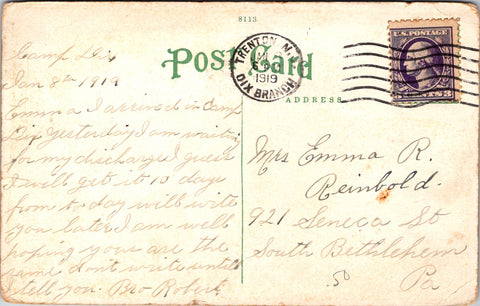 8113
Post Card
TRENTON, N.J.
1919
DIX BRANCH
U.S. POSTAGE
3 3
ADDRESS
Camp Dix
Jan 8th 1919
Emma I arrived in Camp
Dix yesterday I am waiting
for my discharge I guess
I will get it 10 days
from to day will write
you later I am well
hoping you are the
same dont write until
I tell you. Bro Robert
Mrs Emma R.
Reinbold.
921 Seneca St
South Bethlehem
Pa
.50